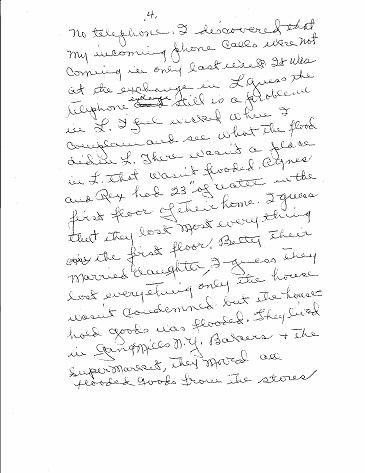 .4.
No telephone. I discovered that
my incoming phone calls were not
coming in only last week. It was
at the exchange in L. guess the
telephone exchange still is a problem
in L. I feel wicked when I
complain and see what the flood
did in L. There wasn't a place
in L. that wasn't flooded. Agnes
and Rex had 23" of water in the
first floor of their home. I guess
that they lost most every thing
on the first floor. Betty their
married daughter, I guess they
lost everything only the house
wasn't condemned but the house
hold goods was flooded. They lived
in Gang Mills N.Y. Bakers + the
Supermarket, they moved all
flooded goods from the stores